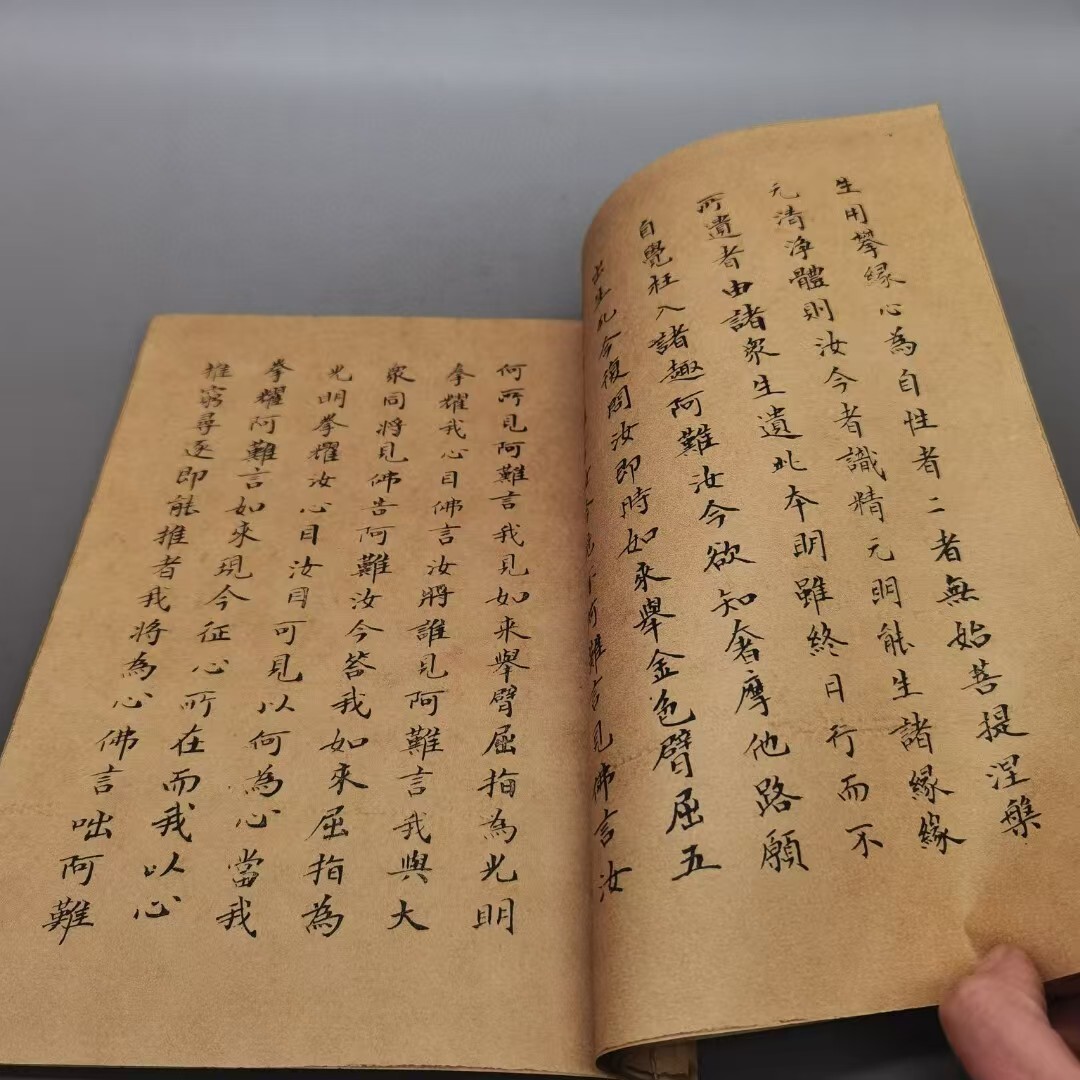 生用攀縁心為自性者二者無始菩提涅槃
元清淨體則汝今者識精元明能生諸縁縁
所遺者由諸衆生遺此本明雖終日行而不
自覺枉入諸趣阿難汝今欲知奢摩他路願
出生死今復問汝即時如來舉金色臂屈五
見不阿難言見佛言汝
何所見阿難言我見如來舉臂屈指為光明
拳耀我心目佛言汝將誰見阿難言我與大
衆同將見佛告阿難汝今答我如來屈指為
光明拳耀汝心目汝目可見以何為心當我
拳耀阿難言如來現今征心所在而我以心
推窮尋逐即能推者我將為心佛言咄阿難